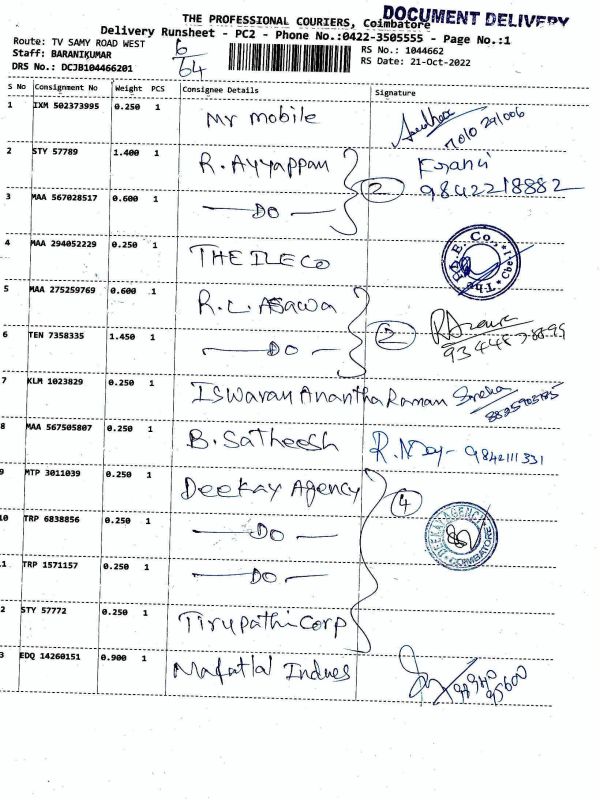 THE PROFESSIONAL COURIERS, Coimbatore
DOCUMENT DELIVERY
Delivery Runsheet - PC2 - Phone No.:0422-3505555 - Page No.:1
Route: TV SAMY ROAD WEST
6
RS No.: 1044662
Staff: BARANIKUMAR
64
RS Date: 21-Oct-2022
DRS No.: DCJB104466201
S No Consignment No Weight PCS Consignee Details Signature
1 IXM 502373995 0.250 1 Mr mobile
7010 291006
2 STY 57789 1.400 1 R. Ayyappan
2 9842218882
3 MAA 567028517 0.600 1 DO
4 MAA 294052229 0.250 1 THE ILE Co
5 MAA 275259769 0.600 1 R.L. Asawa
2
6 TEN 7358335 1.450 1 DO
7 KLM 1023829 0.250 1 Iswaran Anantha Raman Sneka
8 MAA 567505807 0.250 1 B. Satheesh
9842111331
9 MTP 3011039 0.250 1 Deekay Agency 4
10 TRP 6838856 0.250 1 DO
DEEKAY AGENCY COIMBATORE
1 TRP 1571157 0.250 1 DO
2 STY 57772 0.250 1 Tirupathi Corp
3 EDQ 14260151 0.900 1 Mafatlal Indues